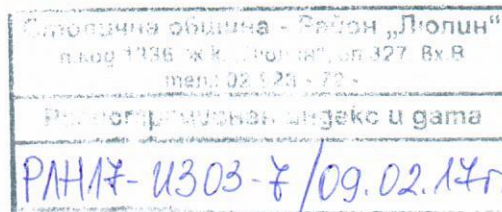 Столична община - Район „Люлин“
п.код 1336 ж.к. „Люлин“, бл.327 вх.В
тел.: 02
Регистрационен индекс и дата
РЛН17-ИЗ03-7/09.02.17г